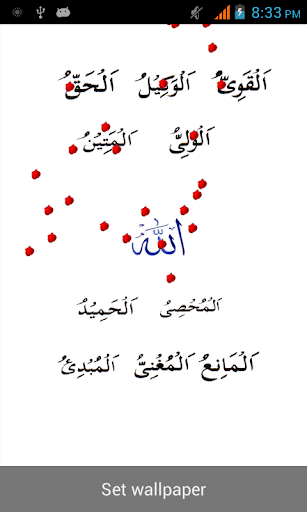 8:33 PM
اَلْحَقُّ اَلْوَكِيْلُ اَلْقَوِىُّ
اَلْمَتِيْنُ اَلْوَلِىُّ
الله
اَلْحَمِيْدُ اَلْمُحْصِىُ
اَلْمُبْدِئُ اَلْمُغْنِىُّ اَلْمَانِعُ
Set wallpaper